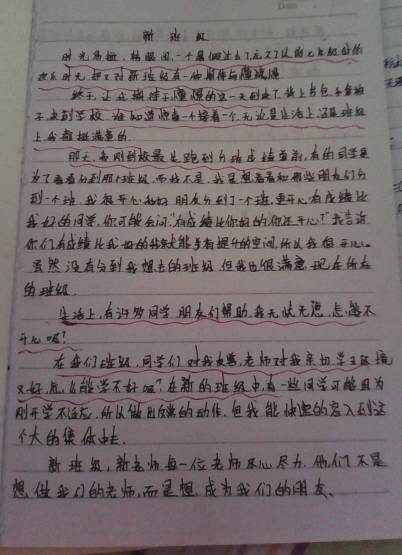 新班级
时光易逝,转眼间,一个暑假过去了,忘不了以前七年级时的
欢乐时光,却又对新班级有一种期待与憧憬。
终于,让我期待于憧憬的这一天到来了,背上书包
来到学校,谁知道惊喜一个接着一个,无论是生活上,还是班级
上,我都挺满意的。
那天,我刚到校最先跑到分班房检查前,有的同学是
为了看看分到那个班级,而我不是,我是想看看和哪些朋友们分
到一个班,我很开心和好朋友分到了一个班,更开心有成绩比
我好的同学,你可能会问:“有成绩比你好的,你还开心?”我告诉
你们有成绩比我好的我才能多有提升的空间,所以我很开心。
虽然没有分到我想去的班级,但我也很满意现在所在
的班级。
生活上,有许多同学,朋友们帮助,我无忧无虑,怎能不
开心呢?
在我们班级,同学们对我友善,老师对我亲切,学习环境
又好,怎么能学不好呢?在新的班级中,有一些同学可能因为
刚开学不适应,所以做出反常的动作,但我能快速的容入到这
个大的集体中去。
新班级,新老师,每一位老师尽心尽力,他们不是
想做我们的老师,而是想成为我们的朋友、